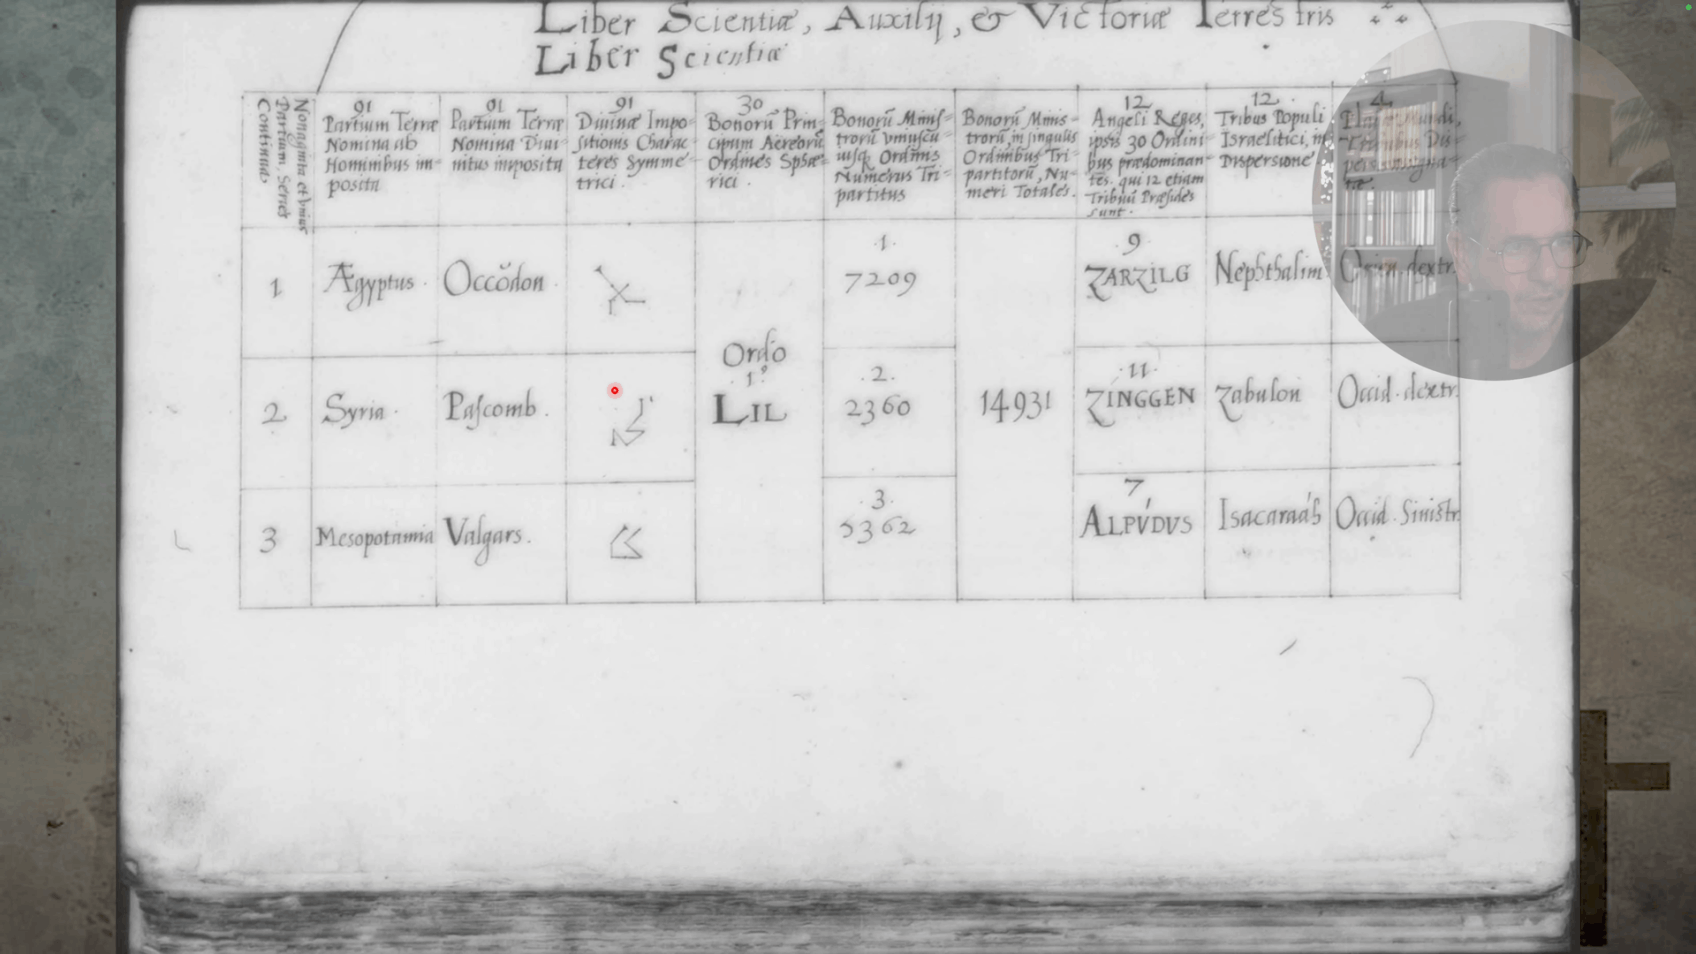 Liber Scientiæ, Auxilij, & Victoriæ Terrestris
Liber Scientiæ
Nonaginta et Vnius
Partium, Series
Continua
91
Partium Terræ
Nomina ab
Hominibus im=
posita
91
Partium Terræ
Nomina Diui=
nitus imposita
91
Diuinæ Impo=
sitionis Charac=
teres Symme=
trici.
30
Bonorū Prin=
cipum Aëreorū
Ordines Sphæ=
rici
Bonorū Minis=
trorū vniuscu=
iusq Ordinis
Numerus Tri=
partitus
Bonorū Minis=
trorū, in singulis
Ordinibus Tri=
partitorū, Nu=
meri Totales.
12
Angeli Reges,
ipsis 30 Ordini=
bus prædominan=
tes. qui 12 etiam
Tribuū Præsides
sunt.
12.
Tribus Populi
Israelitici, in
Dispersione
4
1 Ægyptus. Occŏdon. 1. 7209 9 ZARZILG Nephthalim
2 Syria. Pascomb. Ordo 1° LIL 2. 2360 14931 11. ZINGGEN Zabulon Occid. dextr.
3 Mesopotamia Valgars. 3. 5362 7 ALPVDVS Isacaraáh Occid. Sinistr.